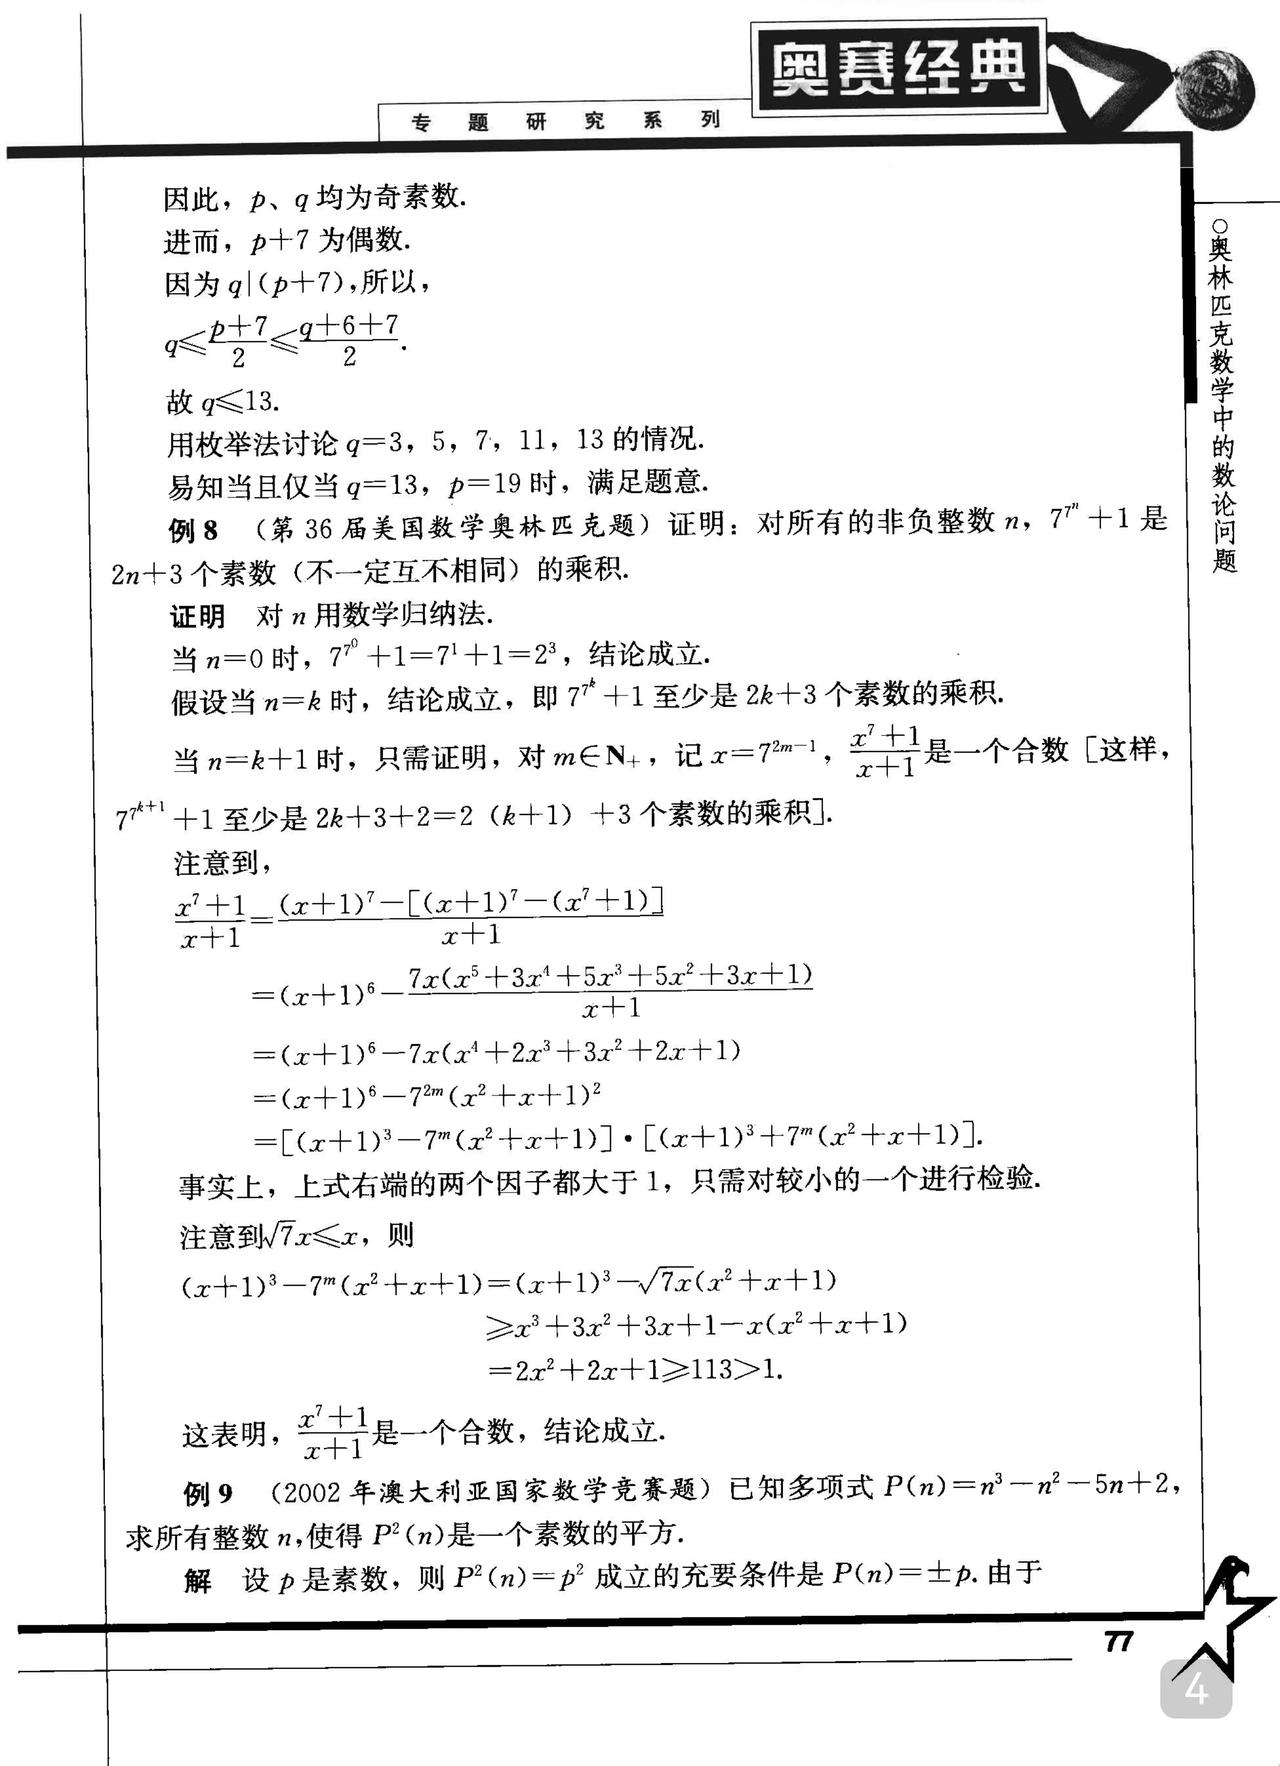 奥赛经典
专题研究系列
因此，p、q 均为奇素数.
进而，p+7 为偶数.
因为 q|(p+7),所以，
q≤\frac{p+7}{2}≤\frac{q+6+7}{2}.
故 q≤13.
用枚举法讨论 q=3，5，7，11，13 的情况.
易知当且仅当 q=13，p=19 时，满足题意.
例 8 （第 36 届美国数学奥林匹克题）证明：对所有的非负整数 n，7^{7^n}+1 是
2n+3 个素数（不一定互不相同）的乘积.
证明 对 n 用数学归纳法.
当 n=0 时，7^{7^0}+1=7^1+1=2^3，结论成立.
假设当 n=k 时，结论成立，即 7^{7^k}+1 至少是 2k+3 个素数的乘积.
当 n=k+1 时，只需证明，对 m∈N_+，记 x=7^{2m-1}，\frac{x^7+1}{x+1}是一个合数［这样，
7^{7^{k+1}}+1 至少是 2k+3+2=2（k+1）+3 个素数的乘积］.
注意到，
\frac{x^7+1}{x+1}=\frac{(x+1)^7-[(x+1)^7-(x^7+1)]}{x+1}
=(x+1)^6-\frac{7x(x^5+3x^4+5x^3+5x^2+3x+1)}{x+1}
=(x+1)^6-7x(x^4+2x^3+3x^2+2x+1)
=(x+1)^6-7^{2m}(x^2+x+1)^2
=[(x+1)^3-7^m(x^2+x+1)]·[(x+1)^3+7^m(x^2+x+1)].
事实上，上式右端的两个因子都大于 1，只需对较小的一个进行检验.
注意到√7x≤x，则
(x+1)^3-7^m(x^2+x+1)=(x+1)^3-\sqrt{7x}(x^2+x+1)
≥x^3+3x^2+3x+1-x(x^2+x+1)
=2x^2+2x+1≥113>1.
这表明，\frac{x^7+1}{x+1}是一个合数，结论成立.
例 9 （2002 年澳大利亚国家数学竞赛题）已知多项式 P(n)=n^3-n^2-5n+2，
求所有整数 n,使得 P^2(n)是一个素数的平方.
解 设 p 是素数，则 P^2(n)=p^2 成立的充要条件是 P(n)=±p. 由于
○奥林匹克数学中的数论问题
77
4